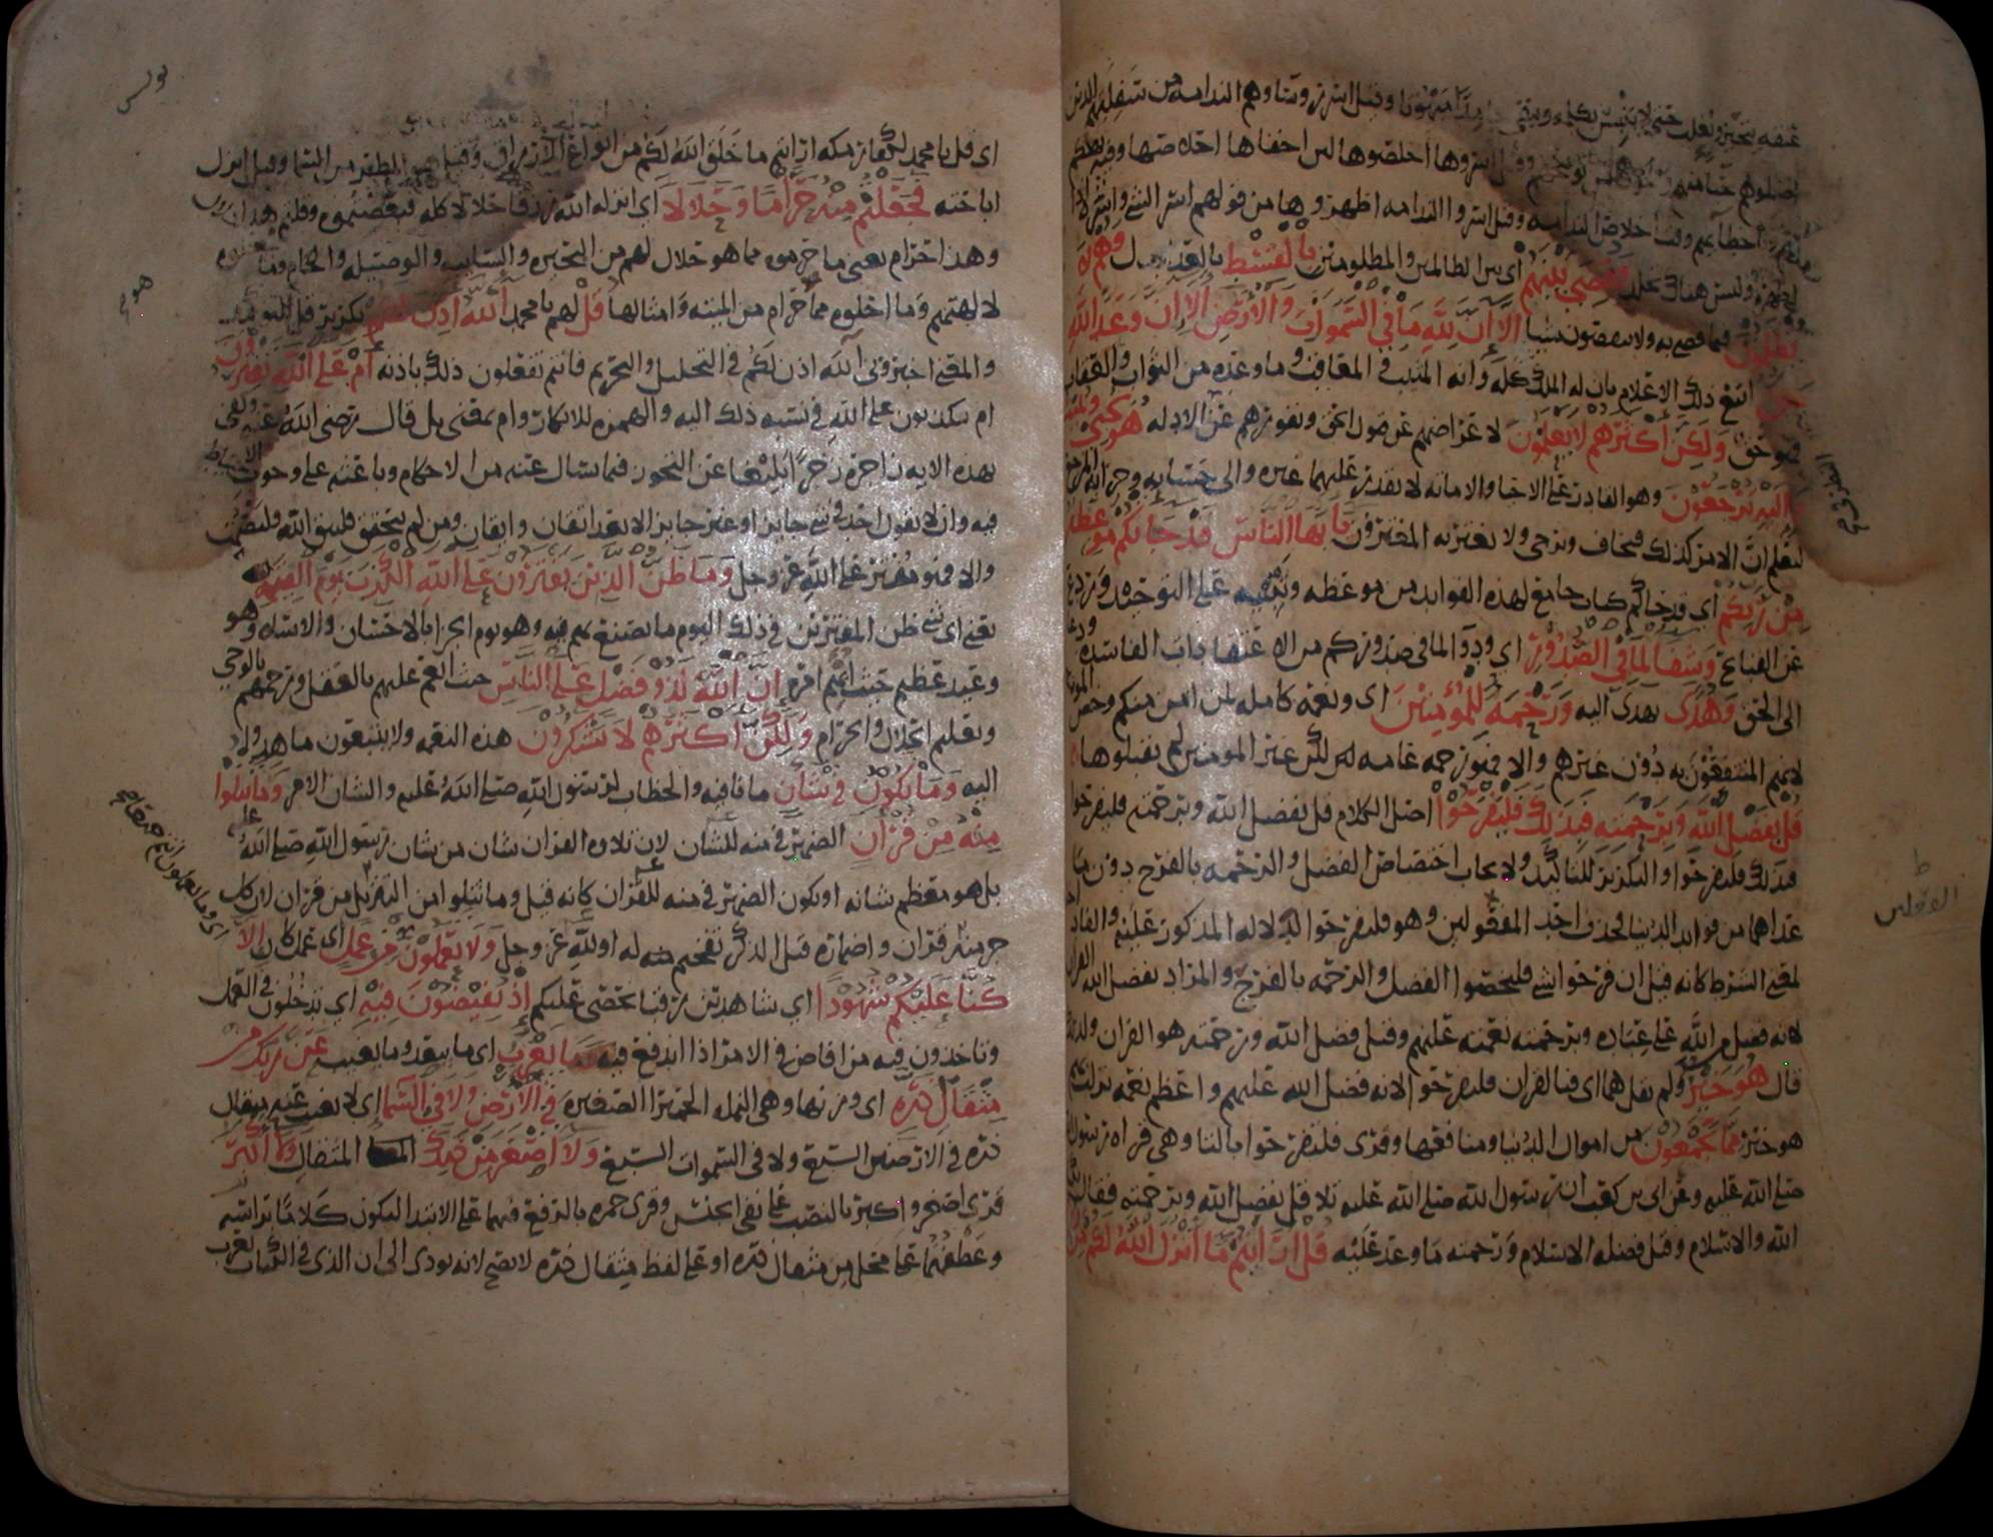 وقيل اسر رؤساؤهم الندامه من سفلتهم الذين
اضلوهم حيا منهم وخوفا من توبيخهم وقيل اسروها اخلصوها لان اخفاها اخلاصها وفيه تهكم
وقت اخلاص الندامه وقيل اسروا الندامه اظهروها من قولهم اسر الشي واشره اذا
اظهره وليس هناك تجلد وَقُضِيَ بَيْنَهُمْ اي بين الظالمين والمظلومين بِالْقِسْطِ بالعدل وَهُمْ لَا
يُظْلَمُونَ فيما قضي به ولا ينقصون شيا أَلَا إِنَّ لِلَّهِ مَا فِي السَّمَوَاتِ وَالْأَرْضِ أَلَا إِنَّ وَعْدَ اللَّهِ
حَقٌّ اتبع ذلك الاعلام بان له الملك كله وانه المثيب المعاقب وما وعده من الثواب والعقاب
فهو حق وَلَكِنَّ أَكْثَرَهُمْ لَا يَعْلَمُونَ لاعراضهم عن قبول الحق ونفورهم عن الادله هُوَ يُحْيِي وَيُمِيتُ
وَإِلَيْهِ تُرْجَعُونَ وهو القادر على الاحيا والاماته لا يقدر عليهما غيره والى حسابه وجزايه المرجع
ليعلم ان الامر كذلك فيخاف ويرجى ولا يغتر به المغترون يَا أَيُّهَا النَّاسُ قَدْ جَاءَتْكُمْ مَوْعِظَةٌ
مِنْ رَبِّكُمْ اي قد جاكم كتاب جامع لهذه الفوايد من موعظه وتنبيه على التوحيد وردع
عن القبايح وَشِفَاءٌ لِمَا فِي الصُّدُورِ اي ودوا لما في صدوركم من العقايد الفاسده ودعا
الى الحق وَهُدًى يهدى اليه وَرَحْمَةٌ لِلْمُؤْمِنِينَ اي ونعمه كامله لمن امن منكم وخص المومنين
لانهم المنتفعون به دون غيرهم والا فهو رحمه عامه لكن غير المومنين لم يقبلوها
قُلْ بِفَضْلِ اللَّهِ وَبِرَحْمَتِهِ فَبِذَلِكَ فَلْيَفْرَحُوا اصل الكلام قل بفضل الله وبرحمته فليفرحوا
فبذلك فليفرحوا والتكرير للتاكيد ولايجاب اختصاص الفضل والرحمه بالفرح دون ما
عداهما من فوايد الدنيا فحذف احد الفعلين وهو فليفرحوا لدلاله المذكور عليه والفا داخله
لمعنى الشرط كانه قيل ان فرحوا بشي فليخصوا الفضل والرحمه بالفرح والمراد بفضل الله القران
لانه فضل من الله على عباده وبرحمته نعمته عليهم وقيل فضل الله ورحمته هو القران ولذلك
قال هُوَ خَيْرٌ ولم يقل هما اي فبالقران فليفرحوا لانه فضل الله عليهم واعظم نعمه نزلت بهم
هو خير مِمَّا يَجْمَعُونَ من اموال الدنيا ومنافعها وقرى فلتفرحوا بالتا وهي قراه رسول
صلى الله عليه وعن ابي بن كعب ان رسول الله صلى الله عليه تلا قل بفضل الله وبرحمته فقال
الله والاسلام وقيل فضله الاسلام ورحمته ما وعد عليه قُلْ أَرَأَيْتُمْ مَا أَنْزَلَ اللَّهُ لَكُمْ مِنْ
الفعلين
يونس
هود
اي قل يا محمد لكفار مكه ارايتم ما خلق الله لكم من انواع الارزاق وقيل هو المطر من السما وقيل انزل
اباحته فَجَعَلْتُمْ مِنْهُ حَرَامًا وَحَلَالًا اي انزله الله رزقا حلالا كله فبعضتموه وقلتم هذا حلال
وهذا حرام يعني ما حرموه مما هو حلال لهم من البحيره والسايبه والوصيله والحام وما جعلوه
لالهتهم وما احلوه مما حرام من الميته وامثالها قُلْ لهم يا محمد آللَّهُ أَذِنَ لَكُمْ تكرير قل للتوكيد
والمعنى اخبروني آلله اذن لكم في التحليل والتحريم فانتم تفعلون ذلك باذنه أَمْ عَلَى اللَّهِ تَفْتَرُونَ
ام تكذبون على الله في نسبه ذلك اليه والهمزه للانكار وام بمعنى بل قال رضي الله عنه وكفى
بهذه الايه زاجره زجرا بليغا عن التجوز فيما يسال عنه من الاحكام وباعثه على وجوب الاحتياط
فيه وان لا يقول احد في شي جايز او غير جايز الا بعد اتقان وايقان ومن لم يتحقق فليتق الله وليصمت
والا فهو مفتر على الله عز وجل وَمَا ظَنُّ الَّذِينَ يَفْتَرُونَ عَلَى اللَّهِ الْكَذِبَ يَوْمَ الْقِيَمَةِ
يعني اي شي ظن المفترين في ذلك اليوم ما يصنع بهم فيه وهو يوم الجزا بالاحسان والاساه وهو
وعيد عظيم حيث ابهم امره إِنَّ اللَّهَ لَذُو فَضْلٍ عَلَى النَّاسِ حيث انعم عليهم بالعقل ورحمهم بالوحي
وتعليم الحلال والحرام وَلَكِنَّ أَكْثَرَهُمْ لَا يَشْكُرُونَ هذه النعمه ولا يتبعون ما هدوا
اليه وَمَا تَكُونُ فِي شَأْنٍ ما نافيه والخطاب لرسول الله صلى الله عليه والشان الامر وَمَا تَتْلُوا
مِنْهُ مِنْ قُرْآنٍ الضمير في منه للشان لان تلاوه القران شان من شان رسول الله صلى الله عليه
بل هو معظم شانه او يكون الضمير في منه للقران كانه قيل وما تتلوا من التنزيل من قران لان كل
جز منه قران واضماره قبل الذكر تفخيم له او لله عز وجل وَلَا تَعْمَلُونَ مِنْ عَمَلٍ اي عمل كان إِلَّا
كُنَّا عَلَيْكُمْ شُهُودًا اي شاهدين رقبا نحصي عليكم إِذْ تُفِيضُونَ فِيهِ اي تدخلون في العمل
وتاخذون فيه من افاض في الامر اذا اندفع فيه وَمَا يَعْزُبُ اي ما يبعد وما يغيب عَنْ رَبِّكَ مِنْ
مِثْقَالِ ذَرَّةٍ اي وزنها وهي النمله الحميرا الصغيره فِي الْأَرْضِ وَلَا فِي السَّمَاءِ اي لا يغيب عنه مثقال
ذره في الارضين السبع ولا في السموات السبع وَلَا أَصْغَرَ مِنْ ذَلِكَ المثقال وَلَا أَكْبَرَ
قرى اصغر واكبر بالنصب على نفي الجنس وقرى حمزه بالرفع فيهما على الابتدا ليكون كلاما براسه
وعطفهما على محل من مثقال ذره او على لفظ مثقال ذره لا يصح لانه يودى الى ان الذي في الكتاب يعزب